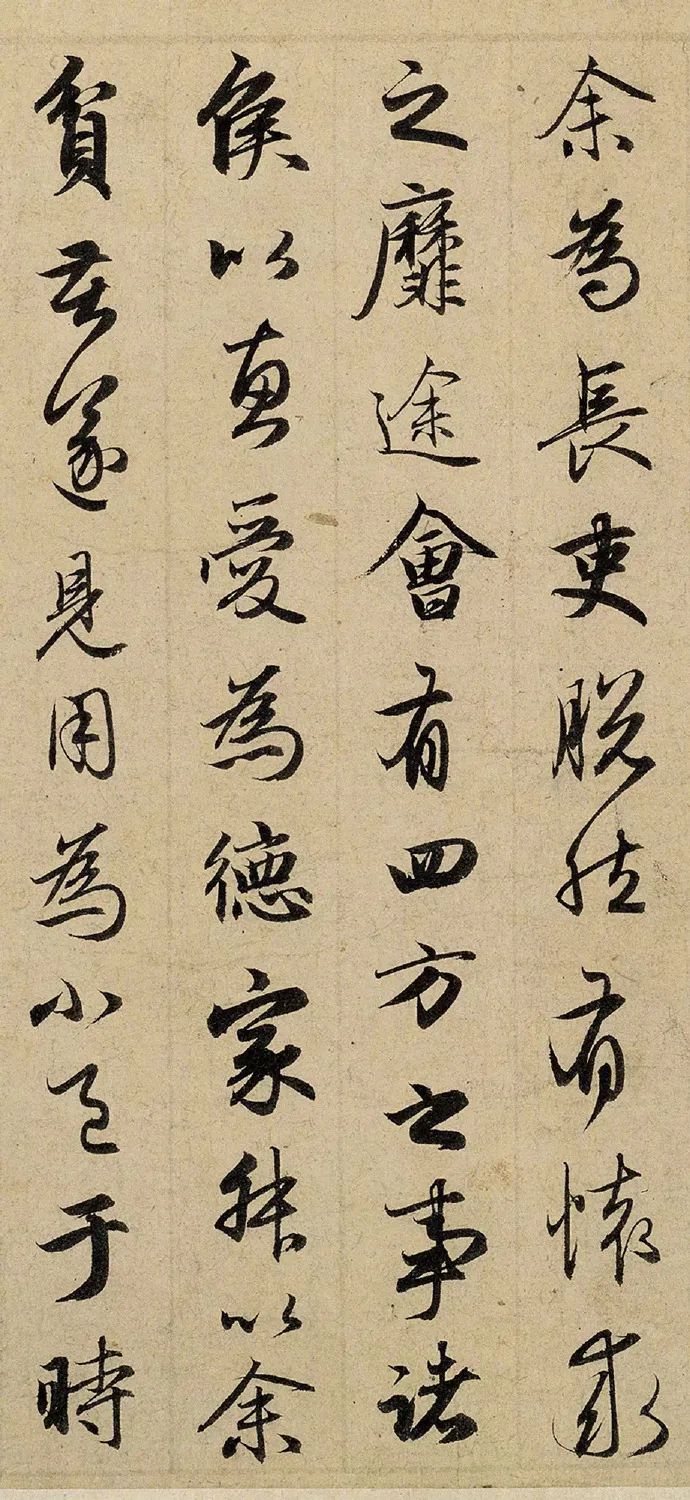 余為長吏脫然有懷求
之靡途會有四方之事諸
侯以惠愛為德家叔以余
貧苦遂見用為小邑于時